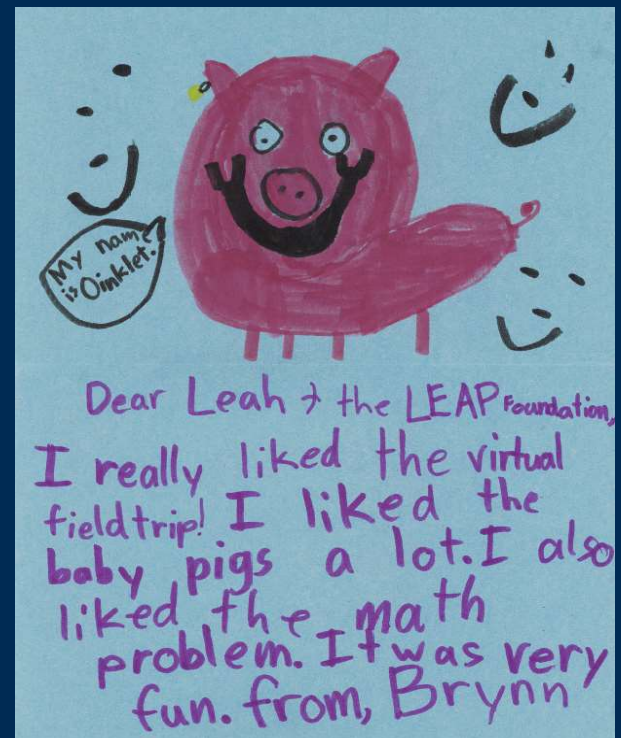 My name
is Oinklet.
Dear Leah & the LEAP Foundation,
I really liked the virtual
fieldtrip! I liked the
baby pigs a lot. I also
liked the math
problem. It was very
fun. from, Brynn